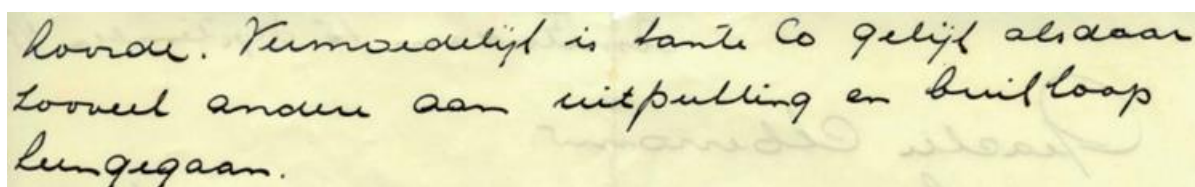 hoorde. Vermoedelijk is tante Co gelijk als daar
zooveel andere aan uitputting en buikloop
heengegaan.